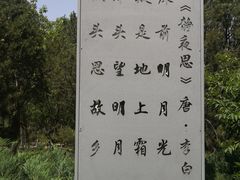 《静夜思》唐·李白
前明月光
是地上霜
头望明月
头思故乡